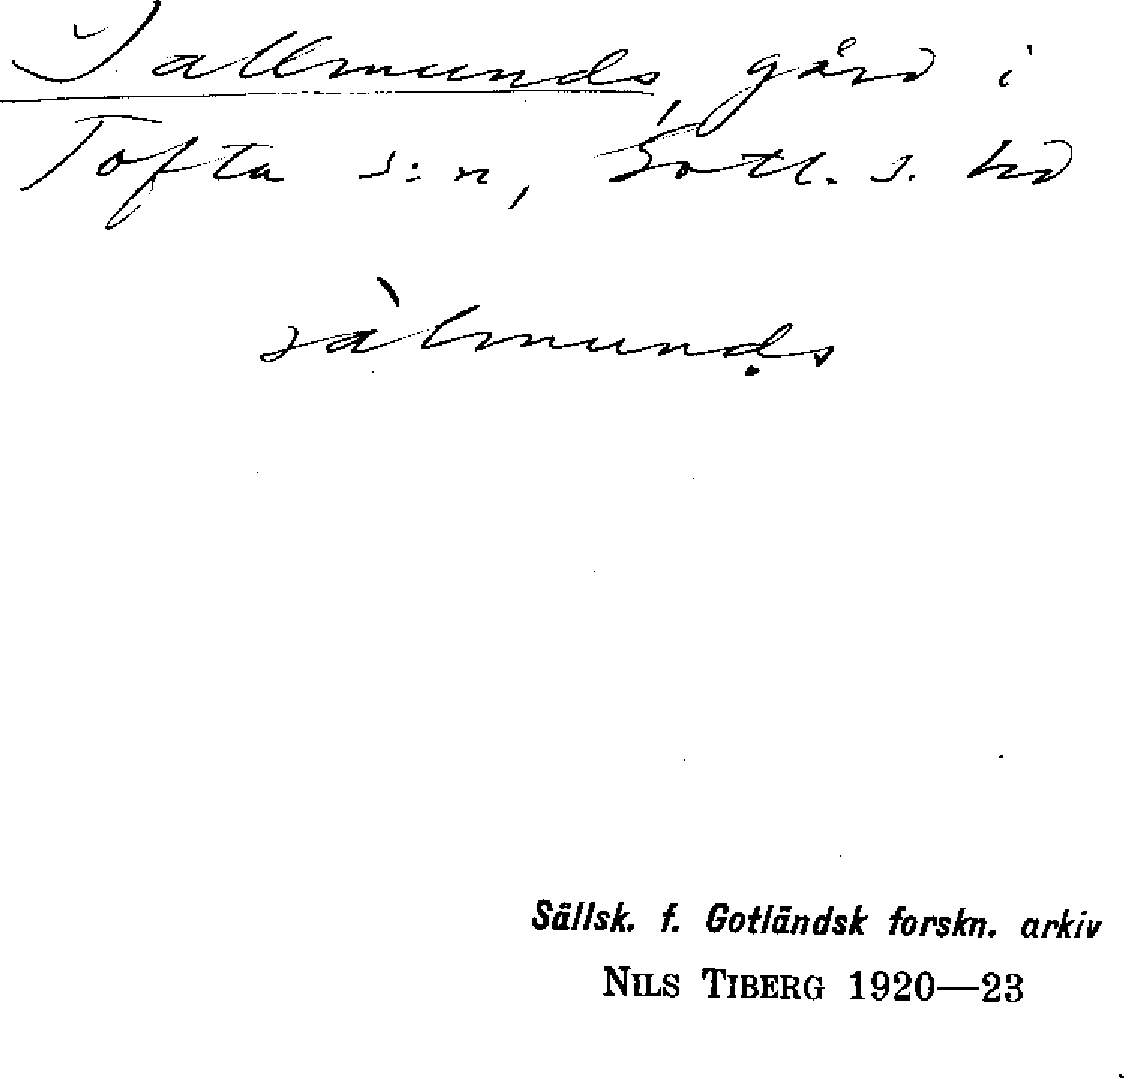 Sallmunds, gård i
Tofta s:n, Gotl. s. hd
sàlmunḍs
Sällsk. f. Gotländsk forskn. arkiv
NILS TIBERG 1920—23